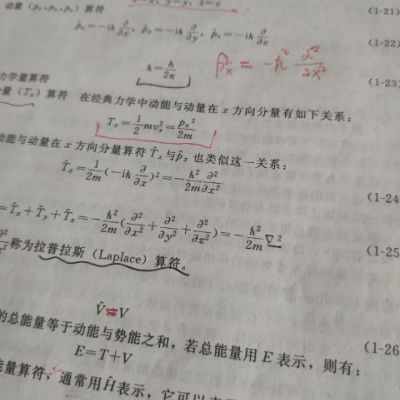 动量（pₓ、p_y、p_z）算符 (1-21)
p̂ₓ=−iℏ ∂/∂x, p̂_y=−iℏ ∂/∂y, p̂_z=−iℏ ∂/∂z (1-22)
ℏ=h/2π
p̂ₓ² = −ℏ² ∂²/∂x²
(1-23)
力学量算符
量（Tₓ）算符 在经典力学中动能与动量在 x 方向分量有如下关系：
Tₓ=1/2 mvₓ²=pₓ²/2m
动能与动量在 x 方向分量算符 T̂ₓ与p̂ₓ 也类似这一关系：
T̂ₓ=1/2m(−iℏ ∂/∂x)²=−ℏ²/2m ∂²/∂x² (1-24
=T̂ₓ+T̂_y+T̂_z=−ℏ²/2m(∂²/∂x²+∂²/∂y²+∂²/∂z²)=−ℏ²/2m ∇² (1-25
称为拉普拉斯（Laplace）算符。
V̂=V
的总能量等于动能与势能之和，若总能量用 E 表示，则有： (1-26
E=T+V
能量算符，通常用Ĥ表示，它可以